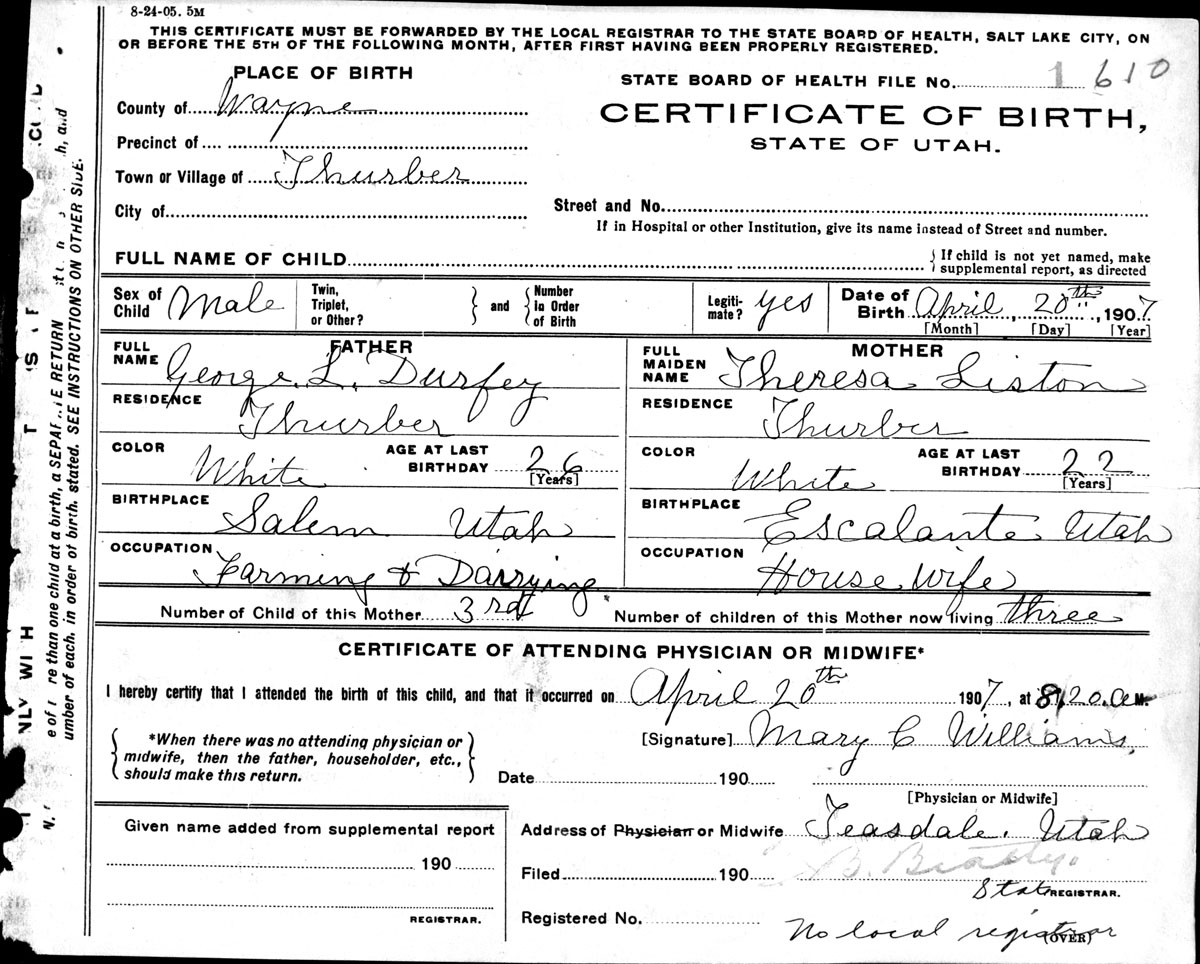 8-24-05. 5M
THIS CERTIFICATE MUST BE FORWARDED BY THE LOCAL REGISTRAR TO THE STATE BOARD OF HEALTH, SALT LAKE CITY, ON
OR BEFORE THE 5TH OF THE FOLLOWING MONTH, AFTER FIRST HAVING BEEN PROPERLY REGISTERED.
PLACE OF BIRTH
STATE BOARD OF HEALTH FILE No. 1 610
County of Wayne
CERTIFICATE OF BIRTH,
STATE OF UTAH.
Precinct of
Town or Village of Thurber
City of
Street and No.
If in Hospital or other Institution, give its name instead of Street and number.
FULL NAME OF CHILD
{ If child is not yet named, make
supplemental report, as directed
Sex of Child Male
Twin, Triplet, or Other? } and { Number in Order of Birth
Legiti-mate? yes
Date of Birth April, 20th, 1907
[Month] [Day] [Year]
FATHER
FULL NAME George. L. Durfey
RESIDENCE Thurber
COLOR White
AGE AT LAST BIRTHDAY 26
[Years]
BIRTHPLACE Salem Utah
OCCUPATION Farming & Dairying
MOTHER
FULL MAIDEN NAME Theresa Liston
RESIDENCE Thurber
COLOR White
AGE AT LAST BIRTHDAY 22
[Years]
BIRTHPLACE Escalante Utah
OCCUPATION House Wife
Number of Child of this Mother 3rd * Number of children of this Mother now living three
CERTIFICATE OF ATTENDING PHYSICIAN OR MIDWIFE*
I hereby certify that I attended the birth of this child, and that it occurred on April 20th 1907, at 8,20. a M.
{ *When there was no attending physician or
midwife, then the father, householder, etc.,
should make this return. }
[Signature] Mary C Williams,
Date 190
[Physician or Midwife]
Given name added from supplemental report
190
REGISTRAR.
Address of Physician or Midwife Teasdale. Utah
Filed 190 B. Beatty.
State REGISTRAR.
Registered No.
No local registrar
(OVER)
RE RETURN
re than one child at a birth, a
umber of each, in order of birth, stated. SEE INSTRUCTIONS ON OTHER SIDE.